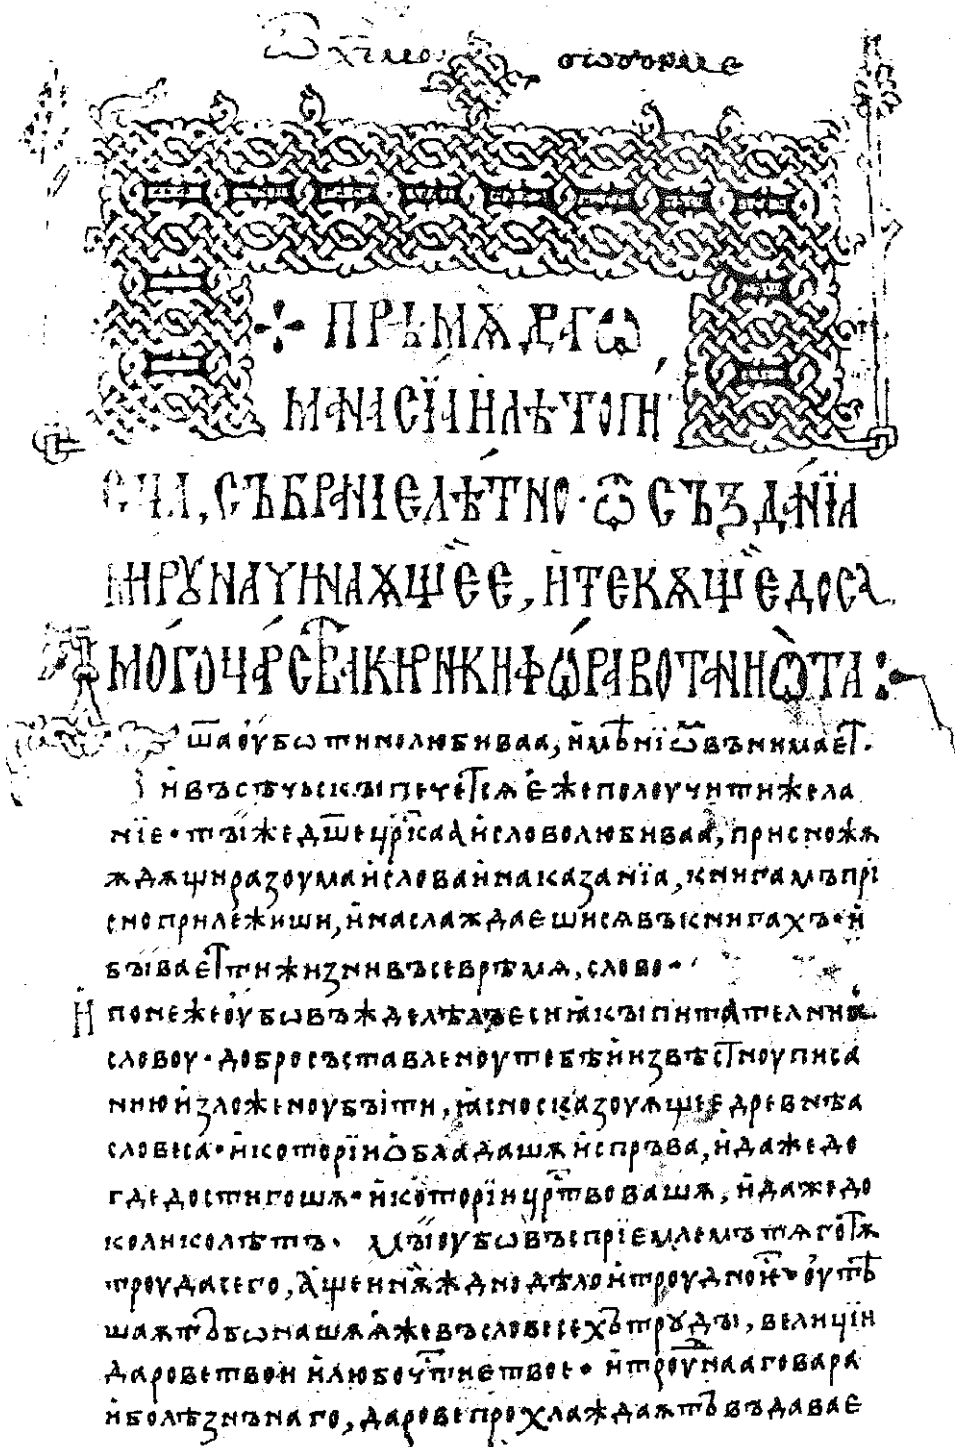 ПРѢМѪДРАГѠ
МАНАСІ́А И ЛѢТОПИ́
СЦА, СЪБРАНІЕ ЛѢ́ТНО · Ѿ СЪЗДА́НЇА
МИРꙊ НАЧИНАѪЩЕЕ, И ТЕКѪЩЕЕ ДО СА
МО́ГО ЦА́РСТВА КИРЬ НИКИФѠ́РА ВОТАНИѠ̀ТА :
ша оу҆бѡ тимолюбиваа, и҆мѣнїѡⷨ вънимаеⷮ ·
и҆ въсѣчьскы печеⷮсѧ є҆же полоучити жела
нїе · ты́ же дш҃е црⷭ҇каа и҆ словолюбиваа, присно жѧ
ждѫщи разоума и҆ слова и҆ наказанїа, книгамъ прі
сно прилежиши, и҆ наслаждаеши сѧ въ книгахъ · и҆
бываеⷮ ти жизни въсе врѣмѧ, слово ·
И҆ понеже оу҆бѡ въжделѣлъ еси ꙗ҆кы питателни
словоу · добро съставленоу тебѣ и҆ извѣстноу писа
нию и҆зложеноу быти, ꙗ҆сно сказоуѫщее древнѣа
словеса · и҆ которїи ѡ҆бладашѫ и҆спръва, и҆ даже до
где достигошѫ · и҆ которїи црⷭ҇твовашѫ, и҆ даже до
колико лѣтъ · мы́ оу҆бѡ въспрїемлемъ тѧготѫ
троуда сего, а҆ще и нѫждно дѣло и҆ троудно є҆ⷭ · оу҆тѣ
шаѫⷮ бѡ наша ꙗ҆же въ словесехъ троуды, велицїи
дарове твои и҆ любочⷭ҇тие твое · и҆ троуⷣнаа го вара
и҆ болѣзнънаго, дарове прохлаждаѫⷮ въдавае